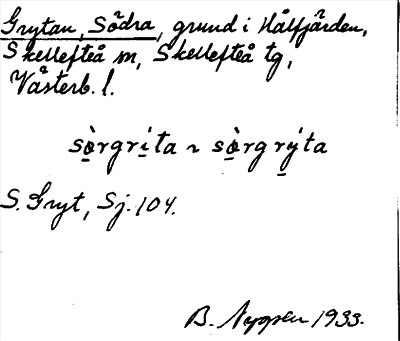 Grytan, Södra, grund i Hålfjärden,
Skellefteå sn, Skellefteå tg,
Västerb. l.
sò̱rgri̱´ta ~ sò̱rgrý̱ta
S. Gryt, Sj. 104.
B. 1933.